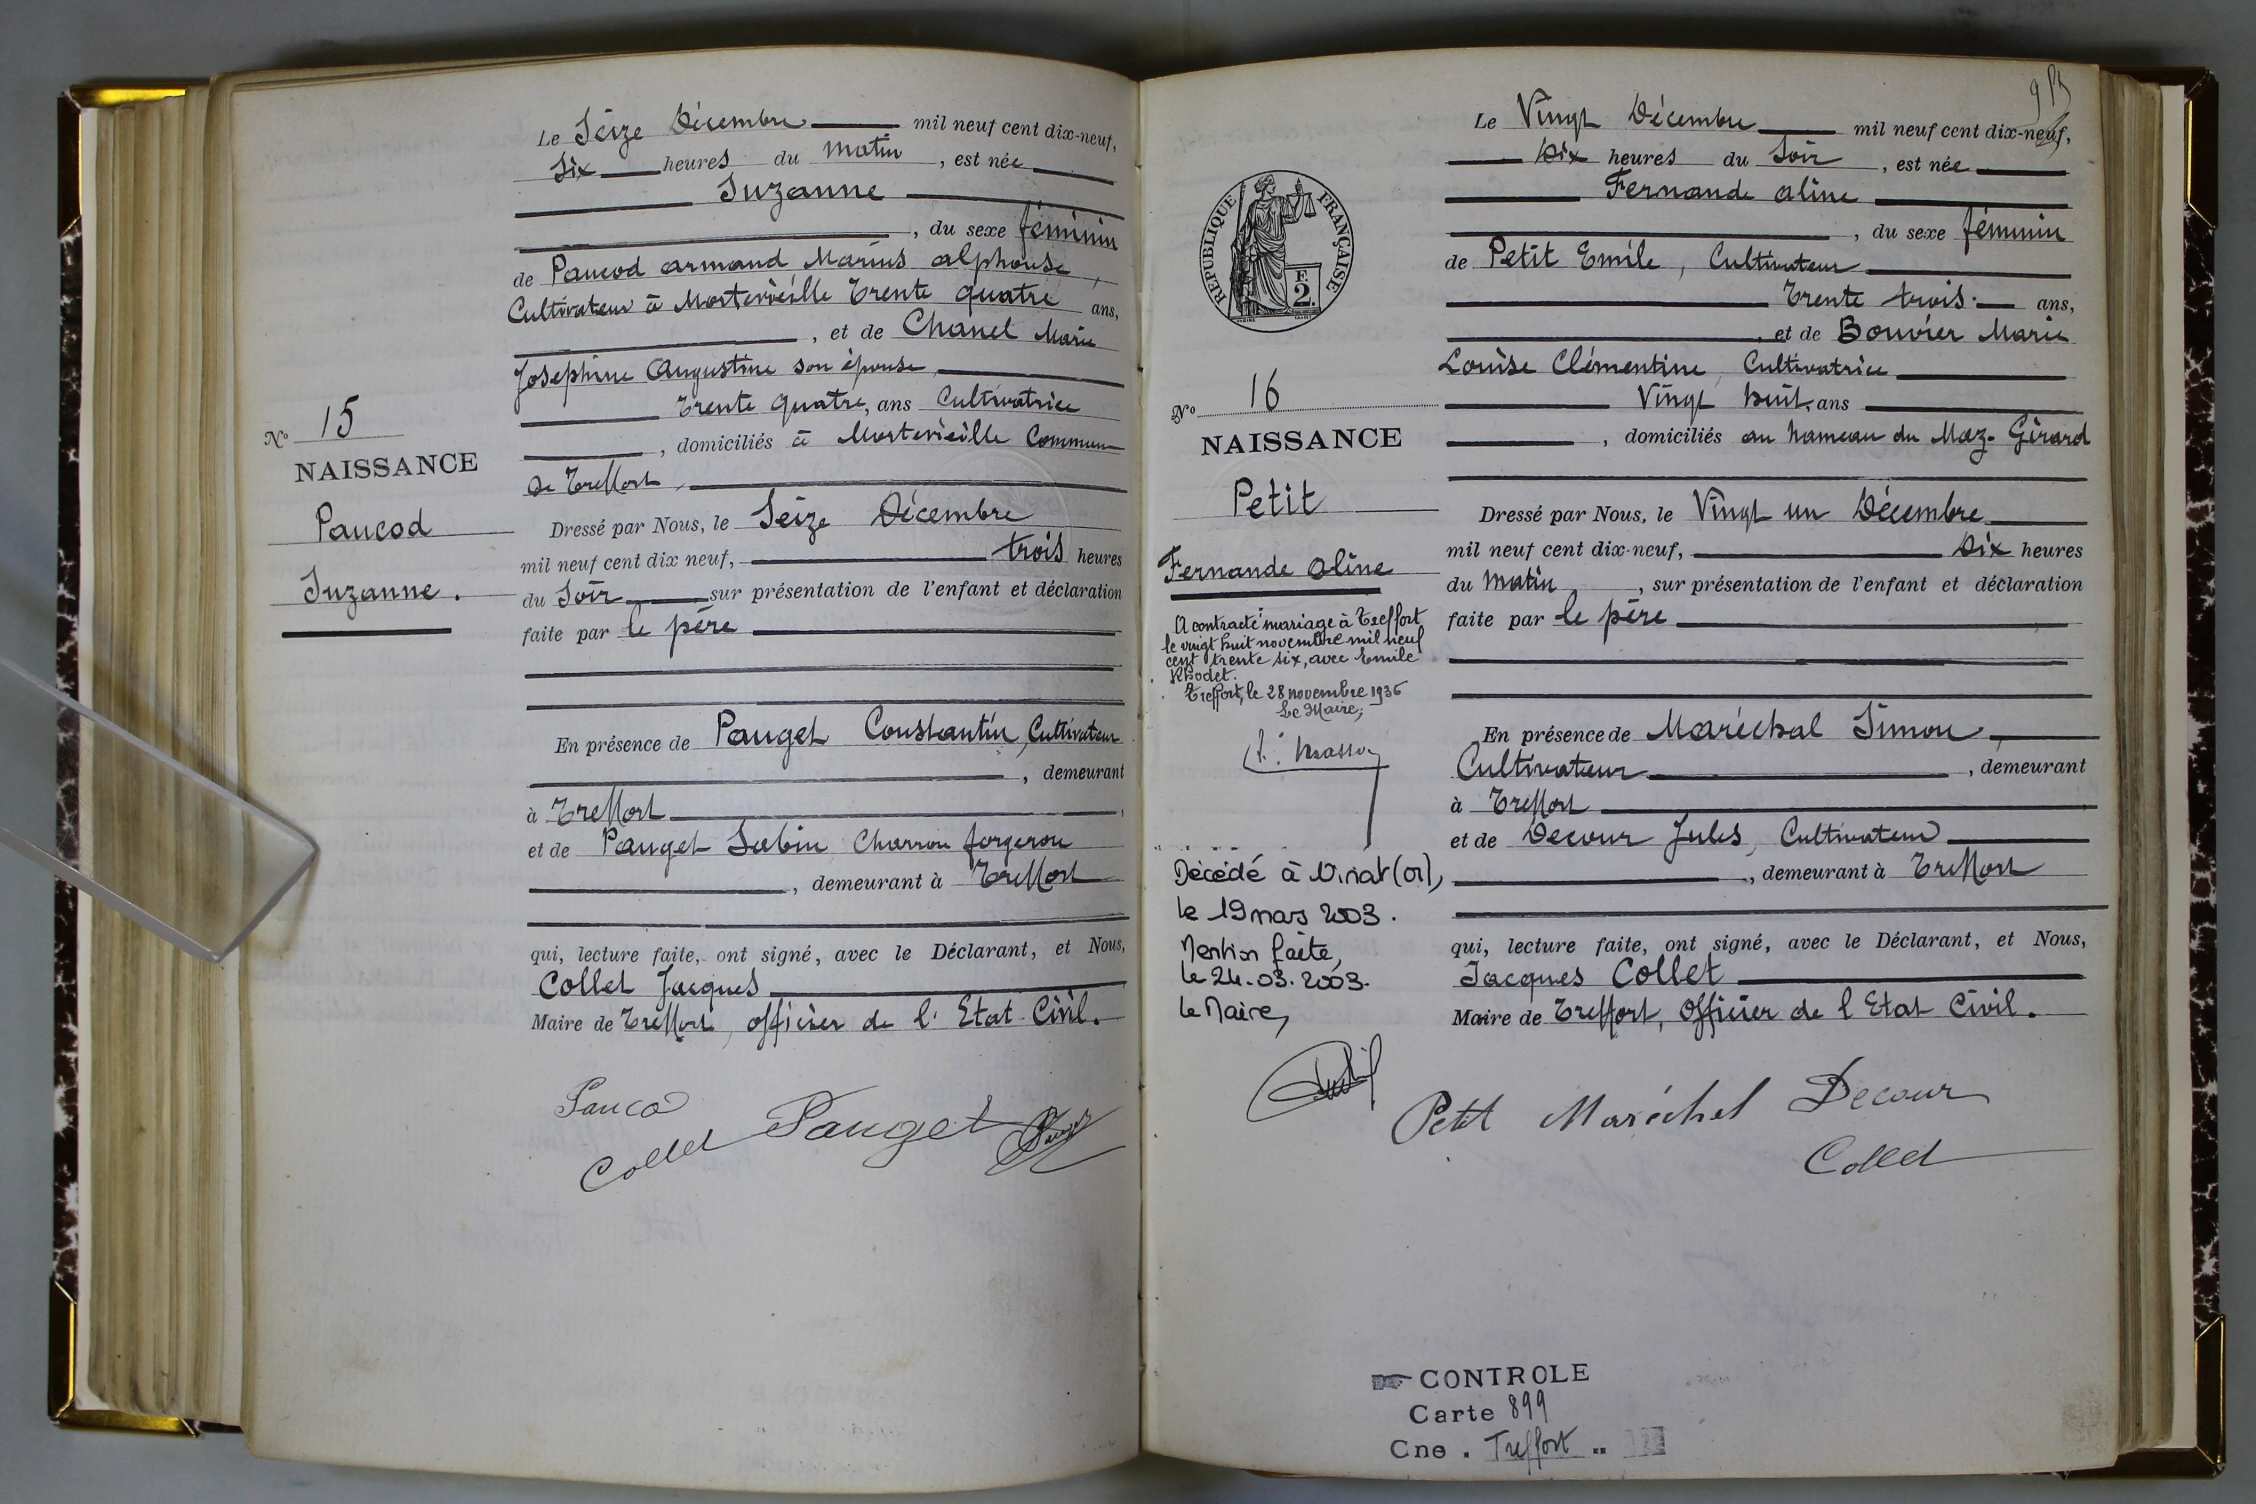 Le Seize Décembre mil neuf cent dix-neuf,
Six heures du matin, est née
Suzanne
, du sexe féminin
de Paucod armand Marius alphonse,
Cultivateur à Montervieille Trente quatre ans,
, et de Chanel Marie
Josephine Augustine son épouse
Trente quatre, ans Cultivatrice
, domiciliés à Commune
de Treffort,
N° 15
NAISSANCE
Paucod
Suzanne.
Dressé par Nous, le Seize Décembre
mil neuf cent dix neuf, trois heures
du Soir sur présentation de l'enfant et déclaration
faite par le père
En présence de Pauget Constantin, Cultivateur
, demeurant
à Treffort,
et de Pauget Sabin Charron forgeron
, demeurant à Treffort
qui, lecture faite, ont signé, avec le Déclarant, et Nous,
Collet Jacques
Maire de Treffort, officier de l'Etat Civil.
Collet Pauget
Le Vingt Décembre mil neuf cent dix-neuf,
Dix heures du Soir, est née
Fernande aline
, du sexe féminin
de Petit Emile, Cultivateur
Trente trois ans,
, et de Bouvier Marie
Louise Clémentine, Cultivatrice
Vingt huit, ans
, domiciliés au hameau du Maz-Girard
REPUBLIQUE FRANÇAISE
E
2.
N° 16
NAISSANCE
Petit
Fernande aline
A contracté mariage à Treffort
le vingt huit novembre mil neuf
cent trente six, avec Emile
Rhodet.
Treffort, le 28 novembre 1936
Le Maire;
Décédé à
le 19 mars 2003.
Mention faite,
le 24.03.2003.
le Maire,
Dressé par Nous, le Vingt un Décembre
mil neuf cent dix-neuf, Dix heures
du matin, sur présentation de l'enfant et déclaration
faite par le père
En présence de Maréchal Simon,
Cultivateur, demeurant
à Treffort
et de Decour Jules, Cultivateur
, demeurant à Treffort
qui, lecture faite, ont signé, avec le Déclarant, et Nous,
Jacques Collet
Maire de Treffort, Officier de l Etat Civil.
Petit Maréchal Decour
Collet
CONTROLE
Carte 899
Cne. Treffort